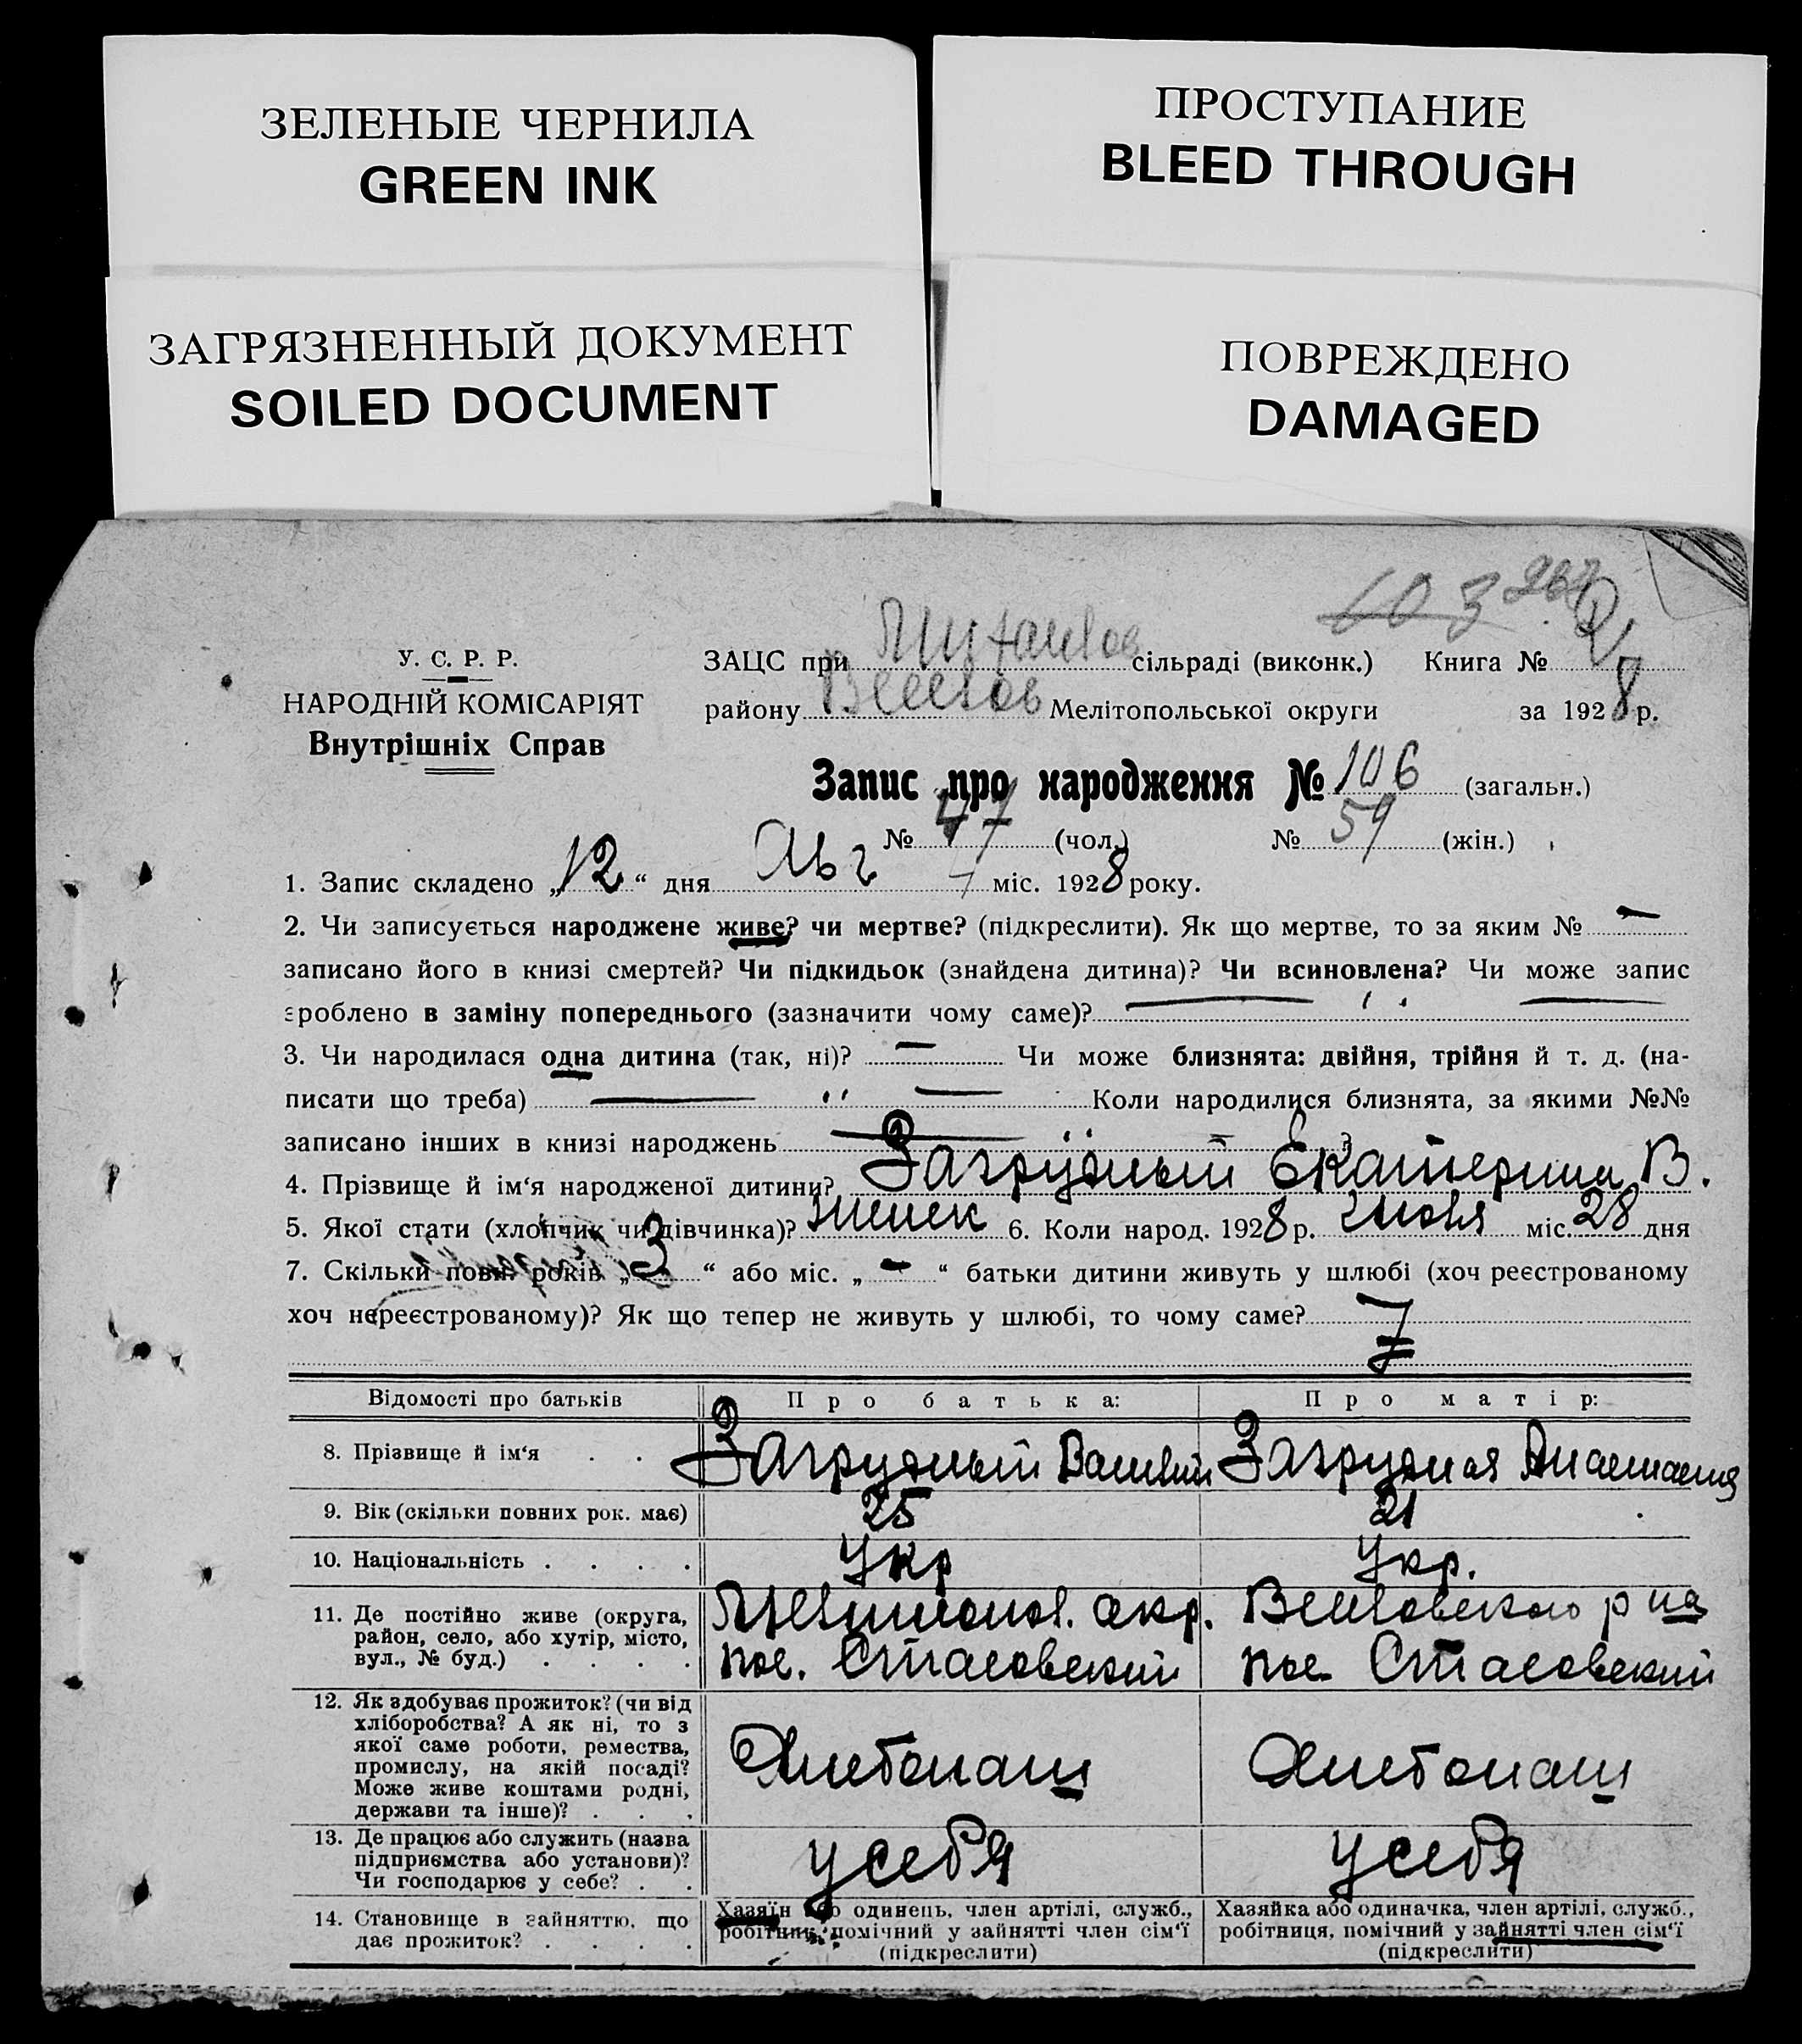 ЗЕЛЕНЫЕ ЧЕРНИЛА
GREEN INK
ПРОСТУПАНИЕ
BLEED THROUGH
ЗАГРЯЗНЕННЫЙ ДОКУМЕНТ
SOILED DOCUMENT
ПОВРЕЖДЕНО
DAMAGED
103
У. С. Р. Р.
НАРОДНІЙ КОМІСАРІЯТ
Внутрішніх Справ
ЗАЦС при сільраді (виконк.) Книга №
району Мелітопольської округи за 1928 р.
Запис про народження № 106 (загальн.)
№ 47 (чол.) № 59 (жін.)
1. Запис складено „12“ дня Авг міс. 1928 року.
2. Чи записується народжене живе? чи мертве? (підкреслити). Як що мертве, то за яким № —
записано його в книзі смертей? Чи підкидьок (знайдена дитина)? Чи всиновлена? Чи може запис
зроблено в заміну попереднього (зазначити чому саме)?
3. Чи народилася одна дитина (так, ні)? — Чи може близнята: двійня, трійня й т. д. (на-
писати що треба) — „ — Коли народилися близнята, за якими №№
записано інших в книзі народжень
4. Прізвище й ім‘я народженої дитини? Загрудный Екатерина В.
5. Якої стати (хлопчик чи дівчинка)? женск 6. Коли народ. 1928 р. Июля міс. 28 дня
7. Скільки повн. років „3“ або міс. „-“ батьки дитини живуть у шлюбі (хоч реєстрованому
хоч нереєстрованому)? Як що тепер не живуть у шлюбі, то чому саме?
Відомості про батьків Про батька: Про матір:
8. Прізвище й ім‘я . . Загрудный Василий Загрудная Анастасия
9. Вік (скільки повних рок. має) 25 21
10. Національність . . . . Укр Укр.
11. Де постійно живе (округа, район, село, або хутір, місто, вул., № буд.) . . . .
Мелитопол. окр. Веселовского р на
пос. Стасовский пос Стасовский
12. Як здобуває прожиток? (чи від хліборобства? А як ні, то з якої саме роботи, ремества, промислу, на якій посаді? Може живе коштами родні, держави та інше)? . . .
Хлебопаш Хлебопаш
13. Де працює або служить (назва підприємства або установи)? Чи господарює у себе? . .
у себя у себя
14. Становище в зайняттю, що дає прожиток? . . . .
Хазяїн або одинець, член артілі, служб., робітник, помічний у зайнятті член сім‘ї (підкреслити)
Хазяйка або одиначка, член артілі, служб., робітниця, помічний у зайнятті член сім‘ї (підкреслити)